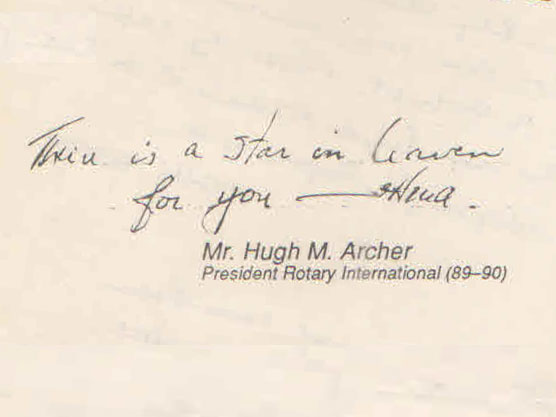 There is a star in heaven
for you —
Mr. Hugh M. Archer
President Rotary International (89–90)